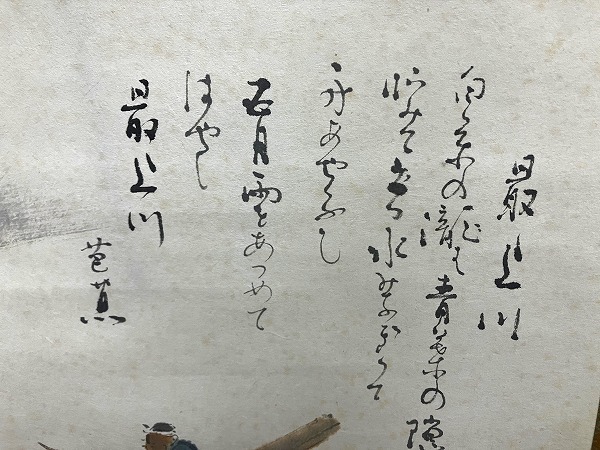 最上川
白糸の瀧は青葉の隙
臨みて立つ水みなぎつて
舟あやふし
五月雨をあつめて
はやし
最上川
芭蕉